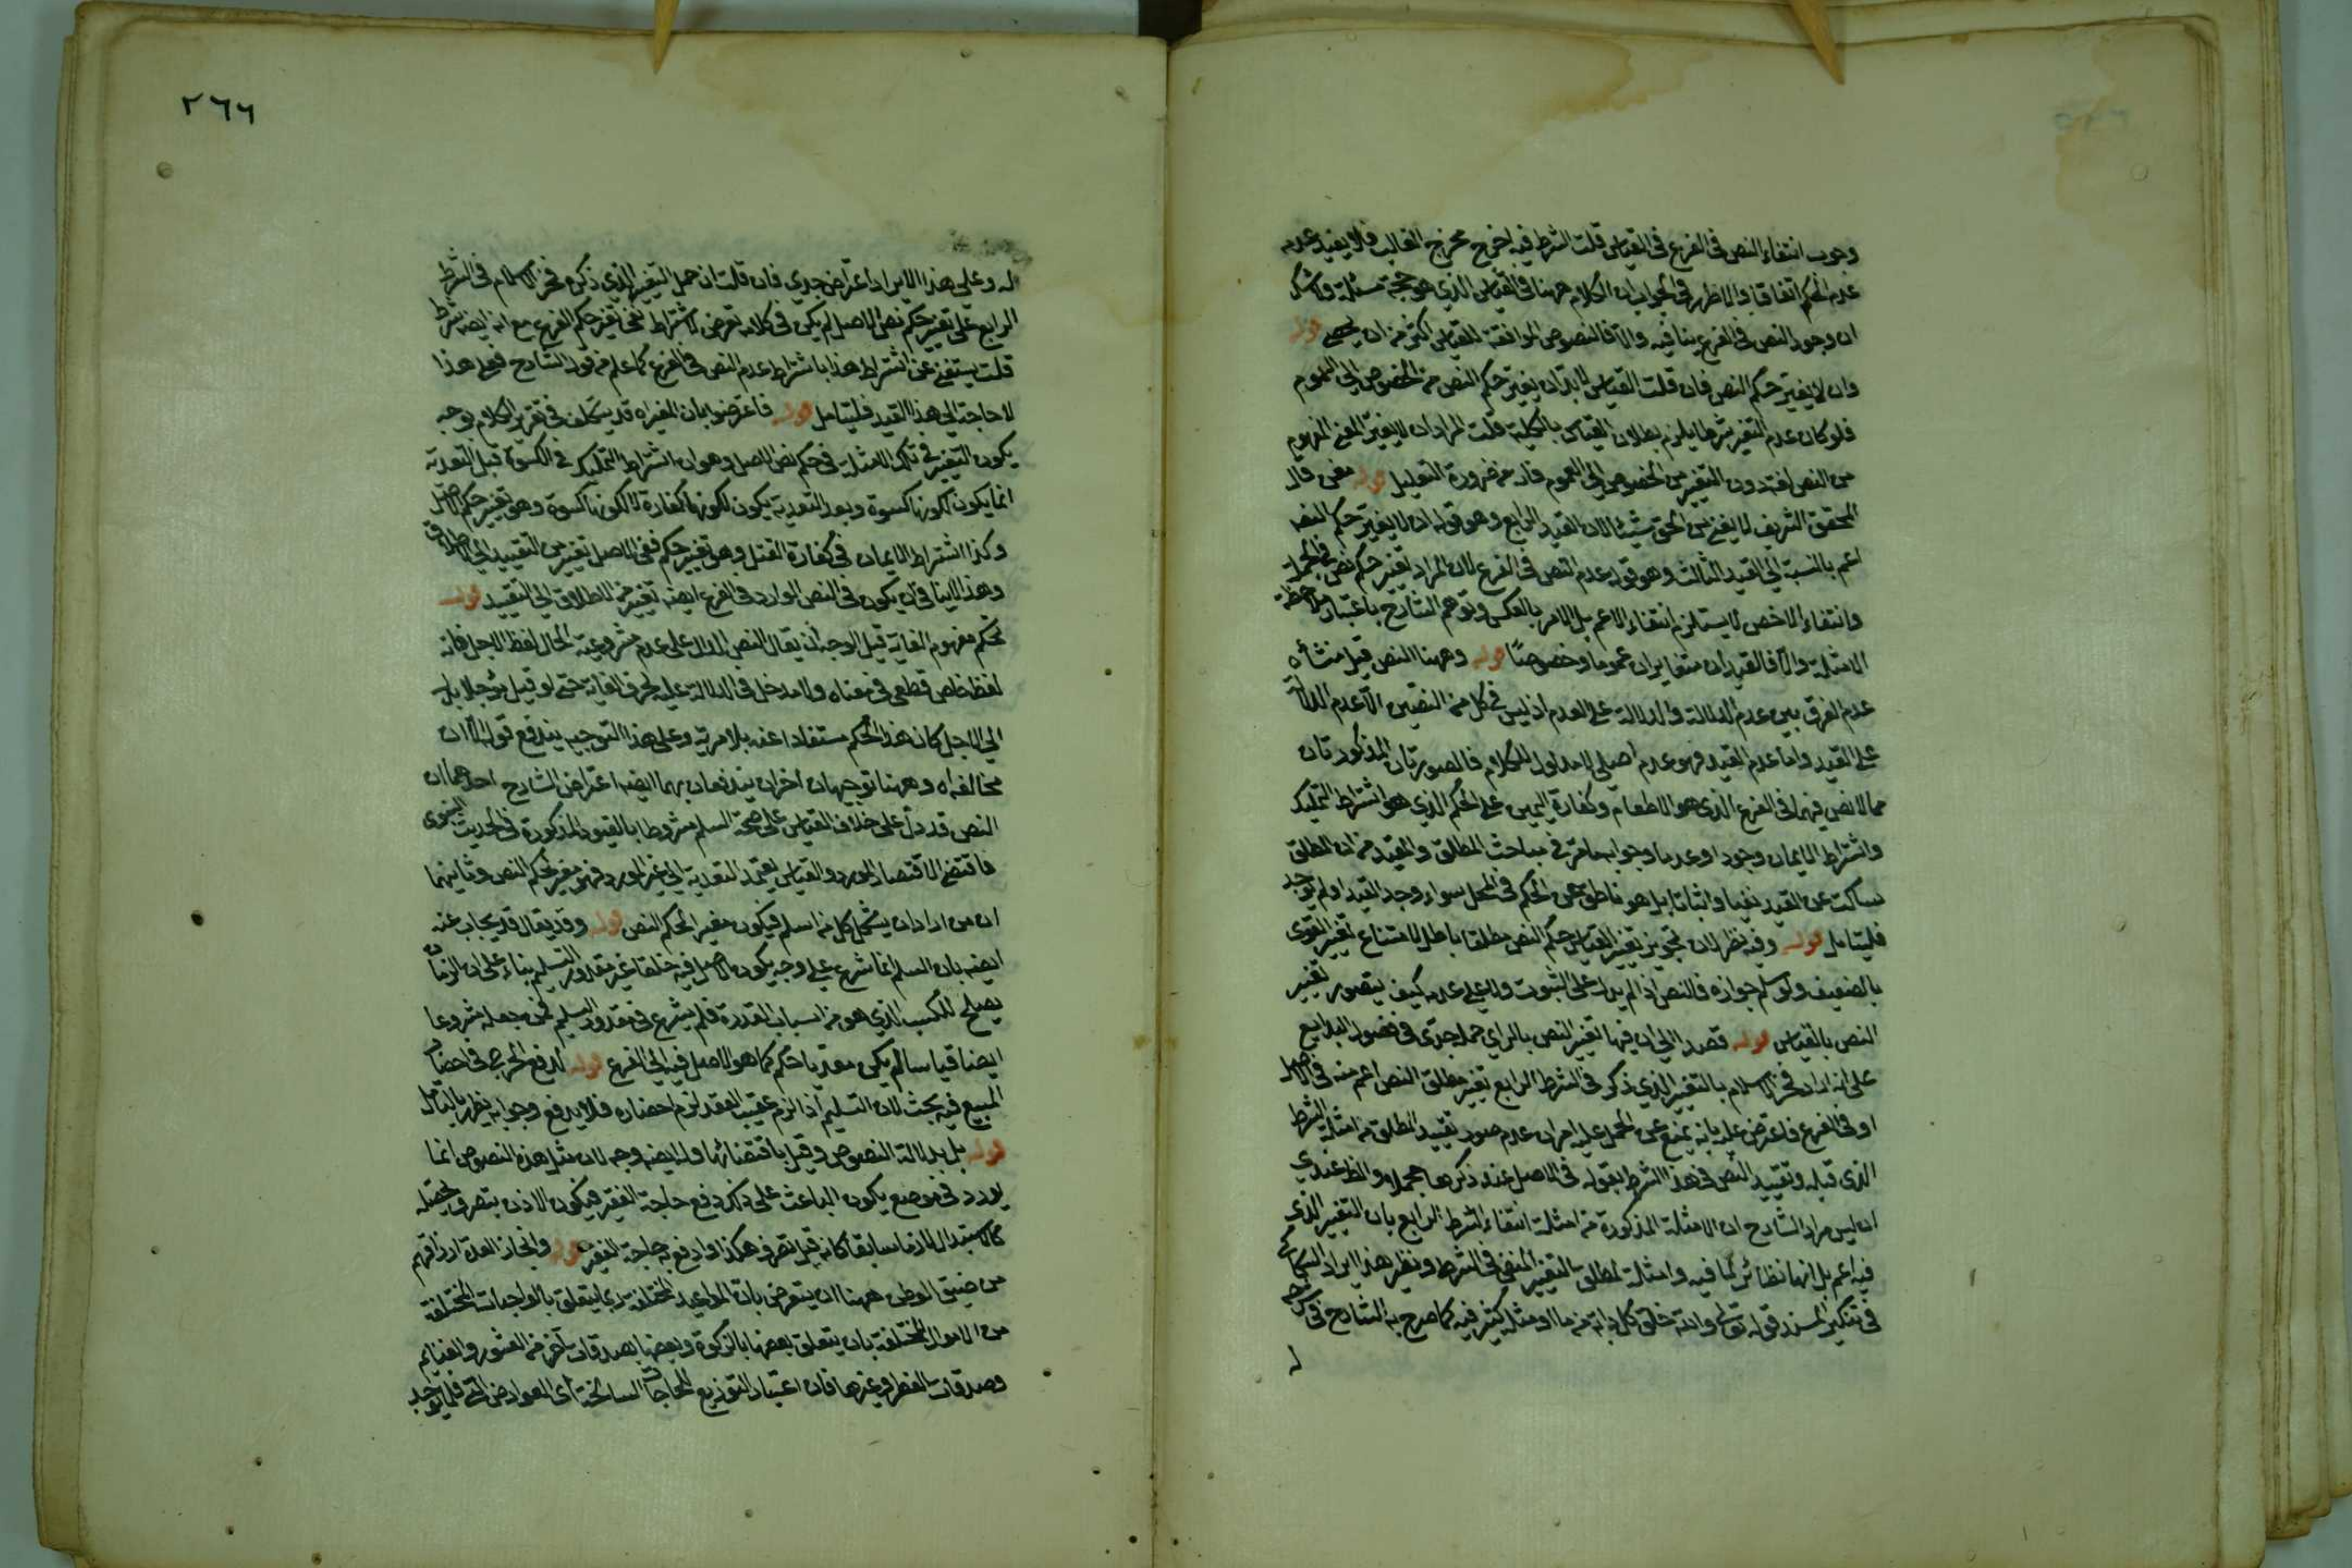 وجوب انتفاء النص في الفرع في القياس قلت الشرط فيه اخرج مخرج الغالب فلا يفيد عدمه
عدم الحكم اتفاقا والاظهر في الجواب ان الكلام ههنا في القياس الذي هو حجة مستقلة ولا شك
ان وجود النص في الفرع ينافيه والا فالنصوص الموافقة للقياس اكثر من ان يحصى قوله
وان لا يغير حكم النص فان قلت القياس لا بد ان يغير حكم النص من الخصوص الى العموم
فلو كان عدم التغير شرطا يلزم بطلان القياس بالكلية قلت المراد ان لا يغير المعنى المفهوم
من النص لغة دون التغير من الخصوص الى العموم فانه من ضرورة التعليل قوله قال
المحقق الشريف لا يغني من الحق شيئا لان القيد الرابع وهو قوله ان لا يغير حكم النص
اعم بالنسبة الى القيد الثالث وهو قوله عدم النص في الفرع لان المراد تغير حكم نص في الجملة
وانتفاء الاخص لا يستلزم انتفاء الاعم بل الامر بالعكس وتوهم الشارح باعتبار ملاحظة
الامثلة والا فالقيدان متغايران عموما وخصوصا قوله وههنا النص قيل منشأه
عدم الفرق بين عدم الدلالة والدلالة على العدم اذ ليس في كل من النصين الا عدم الدلالة
على القيد واما عدم القيد فهو عدم اصلي لا مدلول للكلام فالصورتان المذكورتان
مما لا نص فيهما في الفرع الذي هو الاطعام وكفارة اليمين على الحكم الذي هو اشتراط التمليك
واشتراط الايمان وجودا وعدما وجوابه ما مر في مباحث المطلق والمقيد من ان المطلق
ساكت عن القيد نفيا واثباتا بل هو ناطق عن الحكم في المحل سواء وجد القيد او لم يوجد
فليتأمل قوله وفيه نظر لان تجويز تغير القياس حكم النص مطلقا باطل لامتناع تغير القوى
بالضعيف ولو سلم جوازه فالنص اذا لم يدل على الثبوت ولا على عدمه كيف يتصور تغير
النص بالقياس قوله قصدا الى ان فيها تغير النص بالراي حمل جدى في فصول البدايع
على انه اراد فخر الاسلام بالتغير الذي ذكر في الشرط الرابع تغير مطلق النص اعم منه في الاصل
او في الفرع فاعترض عليه بانه يمنع عن الحمل عليه امران عدم صور تقييد المطلق من امثلة الشرط
الذي قبله وتقييد النص في هذا الشرط بقوله في الاصل عند ذكرها مجملا والظ عندي
ان ليس مراد الشارح ان الامثلة المذكورة من امثلة انتفاء الشرط الرابع بان التغيير الذي
فيه اعم بل انها نظائر لما فيه وامثلة لمطلق التغيير المنفي في الشرط ونظير هذا ايراد السكاكي
في تنكير المسند قوله تعالى والله خلق كل دابة من ماء ومثله كثير فيه كما صرح به الشارح في
له
٢٦٦
له وعلى هذا الايراد اعتراض جدي فان قلت ان حمل التغير الذي ذكره فخر الاسلام في الشرط
الرابع على تغير حكم نص الاصل لم يكن في كلامه تعرض لاشتراط نفي تغير حكم الفرع مع انه ايضا شرط
قلت يستغنى عن اشتراط هذا باشتراط عدم النص في الفرع كما علم من قول الشارح فعلى هذا
لا حاجة الى هذا القيد فليتأمل قوله فاعترضوا بان المغير اه قد يتكلف في تقرير الكلام بوجه
يكون التغير في تلك الامثلة في حكم نص الاصل وهو ان اشتراط التمليك في الكسوة قبل التعدية
انما يكون لكونها كسوة وبعد التعدية يكون لكونها كفارة لا لكونها كسوة وهو تغير حكم الاصل
وكذا اشتراط الايمان في كفارة القتل وهو تغيير حكم ففي الاصل تغيير من التقييد الى الاطلاق
وهذا لا ينافي ان يكون في النص الوارد في الفرع ايضا تغيير من الاطلاق الى التقييد قوله
بحكم مفهوم الغاية قيل الوجه ان يقال النص الدال على عدم مشروعية الحال لفظ الاجل فانه
لفظ خاص قطعي في معناه ولا مدخل في الدلالة عليه لحرف الغاية حتى لو قيل مؤجلا بدل
الى الاجل كان هذا الحكم مستفادا عنه بلا مرية وعلى هذا التوجيه يندفع قوله الا ان
مخالفه اه وههنا توجيهان اخران يندفعان بهما ايضا اعتراض الشارح احدهما ان
النص قد دل على خلاف القياس على صحة السلم مشروطا بالقيود المذكورة في الحديث النبوى
فاقتضى الاقتصار المورد والقياس يعتمد التعدية الى غير المورد فهو مغير لحكم النص وثانيهما
ان من اراد ان يشمل كل من اسلم فيكون مغيرا لحكم النص قوله وقد يقال قد يجاب عنه
ايضا بان السلم انما شرع على وجه يكون الاصل فيه خلقا غير مقدور التسليم بناء على ان الزمان
يصلح للكسب الذي هو من اسباب القدرة فلم يشرع في مقدور التسليم فمن جعله مشروعا
ايضا قياسا لم يكن معديا حكم كما هو الاصل فيه الى الفرع قوله لدفع الحرج في احضار
المبيع فيه بحث لان التسليم اذا لزم عقيب العقد لزم احضاره فلا يدفع وجوابه يظهر بالتأمل
قوله بل بدلالة النصوص وقيل باقتضائها وله ايضا وجه لان مثل هذه النصوص انما
يورد في موضع يكون الباعث على ذكره دفع حاجة الفقير فيكون الاذن بتصرف يحصله
كالاستبدال لازما سابقا كانه قيل تصرف هكذا وادفع به حاجة الفقير قوله وانجاز العدة ارزاقهم
من ضيق الوطن ههنا ان يتعرض بان المواعيد المختلفة ربما يتعلق بالواجبات المختلفة
من الاموال المختلفة بان يتعلق بعضها بالزكوة وبعضها بصدقات اخر من العشور والغنايم
وصدقات الفطر وغيرها فان اعتبار التوزيع للحاجات السانحة اى العوارض التي قلما يوجد